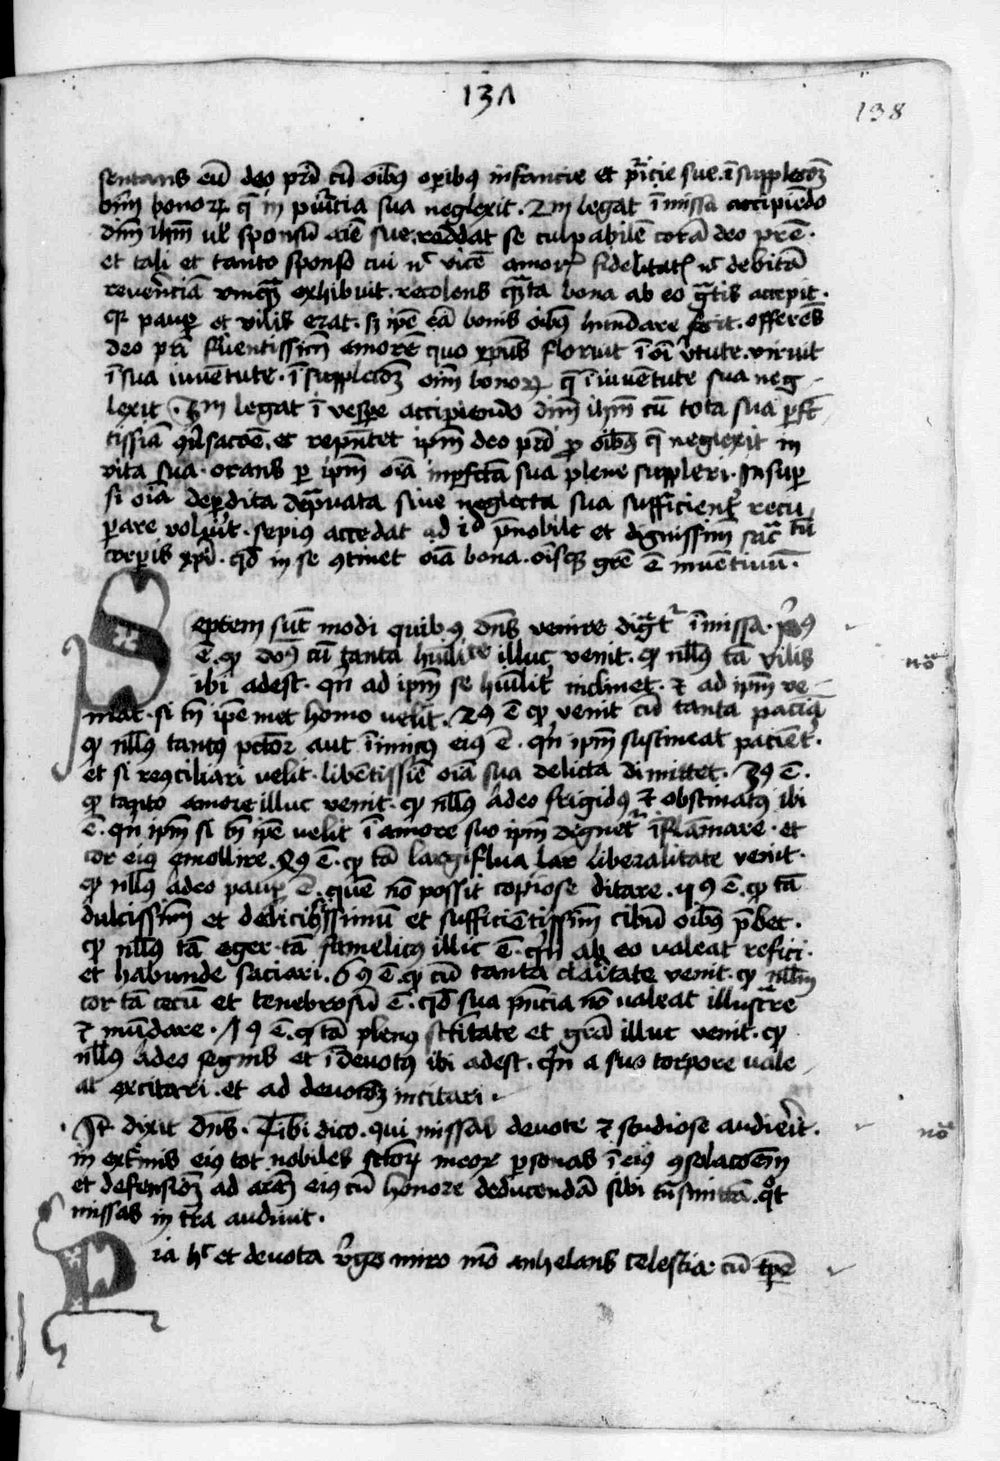 137
138
sentans eū deo pr̄i cū oībꝯ operibꝯ infancie et puericie sue. ī supplecōꝫ
oīm bonoꝝ q̄ in pueritia sua neglexit. 2m legat ī missa accipiēdo
dn̄m ihm̄ ut sponsū aīe sue. reddat se culpabilē corā deo pr̄e.
et tali et tanto sponso cui nc̄ vicē amoris fidelitatis nc̄ debitā
reverēciā vmqꝫ exhibuit. recolens quāta bona ab eo gratis accepit.
qꝛ paup̱ et vilis erat. sꝫ ip̄e eā bonis oībꝯ habundare fecit. offerēs
deo pr̄i fluentissimū amorē quo xp̄us floruit ī oī v̓tute. viruit
ī sua iuuētute. ī supplecōꝫ oīm bonoꝝ q̄ ī iuuētute sua neg-
lexit. 3m legat ī vesp̱e accipiendo dn̄m ihm̄ cū tota sua p̱fc̄-
tissīā ꝯūsacōē. et rep̄ntet ip̄m deo pr̄i ꝓ oībꝯ q̄ neglexit in
vita sua. orans p̱ ip̄m oīa inp̱fcta sua plene suppleri. Insup̱
si oīa dep̱dita dep̄uata siue neglecta sua sufficient̓ recu-
p̱are voluerit. sepiꝯ accedat ad id p̄nobile et dignissim̄ sac̄tū
corp̱is xp̄i. qd̄ in se ꝯtinet oīa bona. oīsqꝫ gr̄e ē inuētiuū.
Septem sūt modi quibꝯ dn̄s venire dignat̓ ī missa. p̓mꝯ
ē. qꝫ dn̄s cū tanta hūilite illuc venit. qꝫ nllꝰ tā vilis
nō
ibi adest. qn ad ip̄m se hūilit̓ inclinet. ⁊ ad ip̄m ve-
niat. si tn̄ ip̄emet homo velit. 2ꝯ ē qꝫ venit cū tanta paciā
qꝫ nllꝰ tantꝯ pctor aut īimicꝯ eiꝯ ē. qn ip̄m sustineat paciēt̓.
et si reꝯciliari velit. libētissīe oīa sua delicta dimittet. 3ꝯ ē.
qꝫ tanto amore illuc venit. qꝫ nllꝰ adeo frigidꝯ ⁊ obstinatꝯ ibi
ē. qn ip̄m si tn̄ ip̄e velit ī amore suo ip̄m dignet̓ īflāmare. et
cor eiꝯ emollire. 4ꝯ ē. qꝫ tā largiflua liberalitate venit.
qꝫ nllꝰ adeo paup̱ ē. quē nō possit copiose ditare. 5ꝯ ē. qꝫ tā
dulcissim̄ et deliciosissimū et sufficiētissim̄ cibū oībꝯ p̄bet.
qꝫ nllꝰ tā eger. tā famelicꝯ illic ē. qn ab eo valeat refici.
et habunde saciari. 6ꝯ ē. qꝫ cū tanta claritate venit. qꝫ nllm̄
cor tā cecū et tenebrosū ē. qd̄ sua p̄ncia nō valeat illustrare
⁊ mūdare. 7ꝯ ē. qꝫ tā plenꝯ sctītate et gr̄a illuc venit. qꝫ
nllꝰ adeo segnis et īdevotꝯ ibi adest. qn a suo torpore vale-
at excitari. et ad devocōꝫ incitari.
It̄ dixit dn̄s. Tibi dico. qui missas devote ⁊ studiose audierit.
nō
in extremis eiꝯ tot nobiles sctoꝝ meoꝝ p̱sonas ī eiꝯ ꝯsolacōem
et defensionꝫ ad aīaꝫ eiꝯ cū honore deducendā sibi trāsmittā. qͦt
missas in tr̄a audiuit.
Pia hc̄ et devota v̓go miro mō anhelans celestia. cū tp̄e